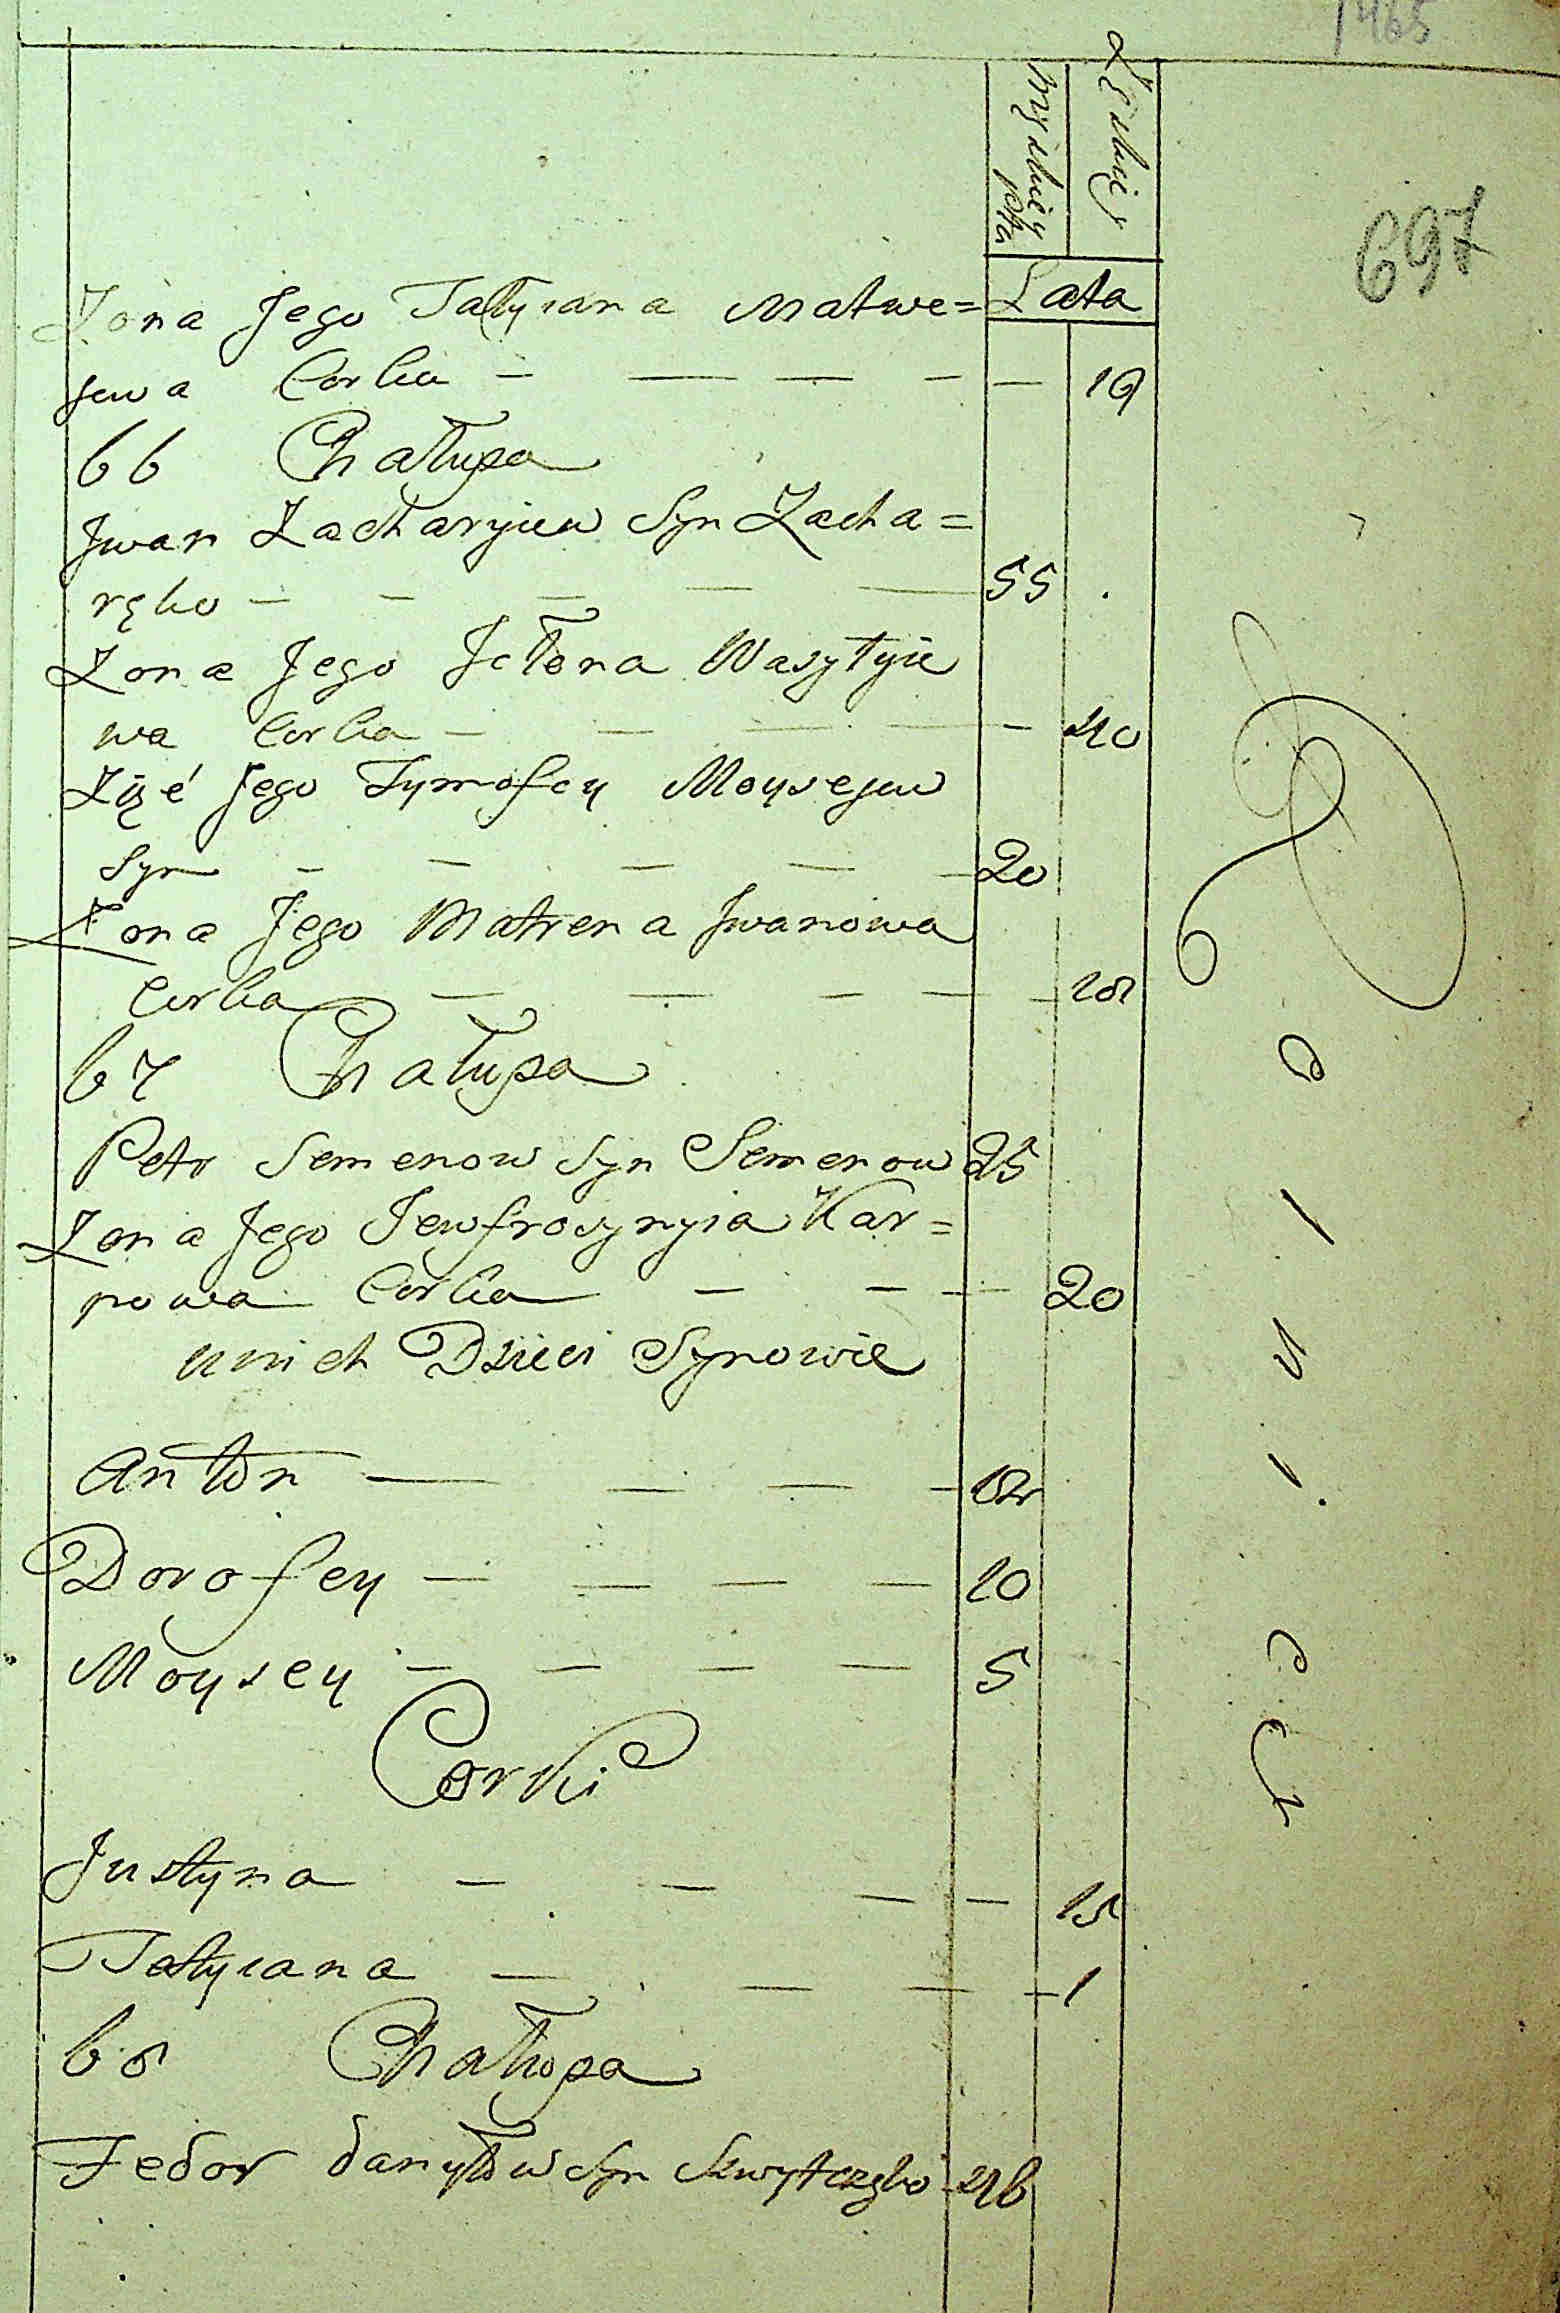 1465
697
Męzkiey płci
Żeńskiey
Lata
Żona Jego Tatyiana Matwe=
jewa Corka — — — — — 19
66 Chałupa
Jwan Zacharyiew Syn Zacha=
ręko — — — — — 55
Zona Jego Jełena Wasyłyie
wa Corka — — — — — 40
Zięć Jego Tymofey Moysejew
Syn — — — — — 20
Zona Jego Matrena Jwanowa
Corka — — — — — 18
67 Chałupa
Petr Semenow Syn Semenow 25
Zona Jego Jewfrosynyia Kar=
powa Corka — — — 20
unich Dzieci Synowie
Anton — — — — 12
Dorofey — — — — 10
Moysey — — — — 5
Corki
Justyna — — — — 15
Tatyiana — — — — 1
68 Chałupa
Fedor Daniłow Syn 46